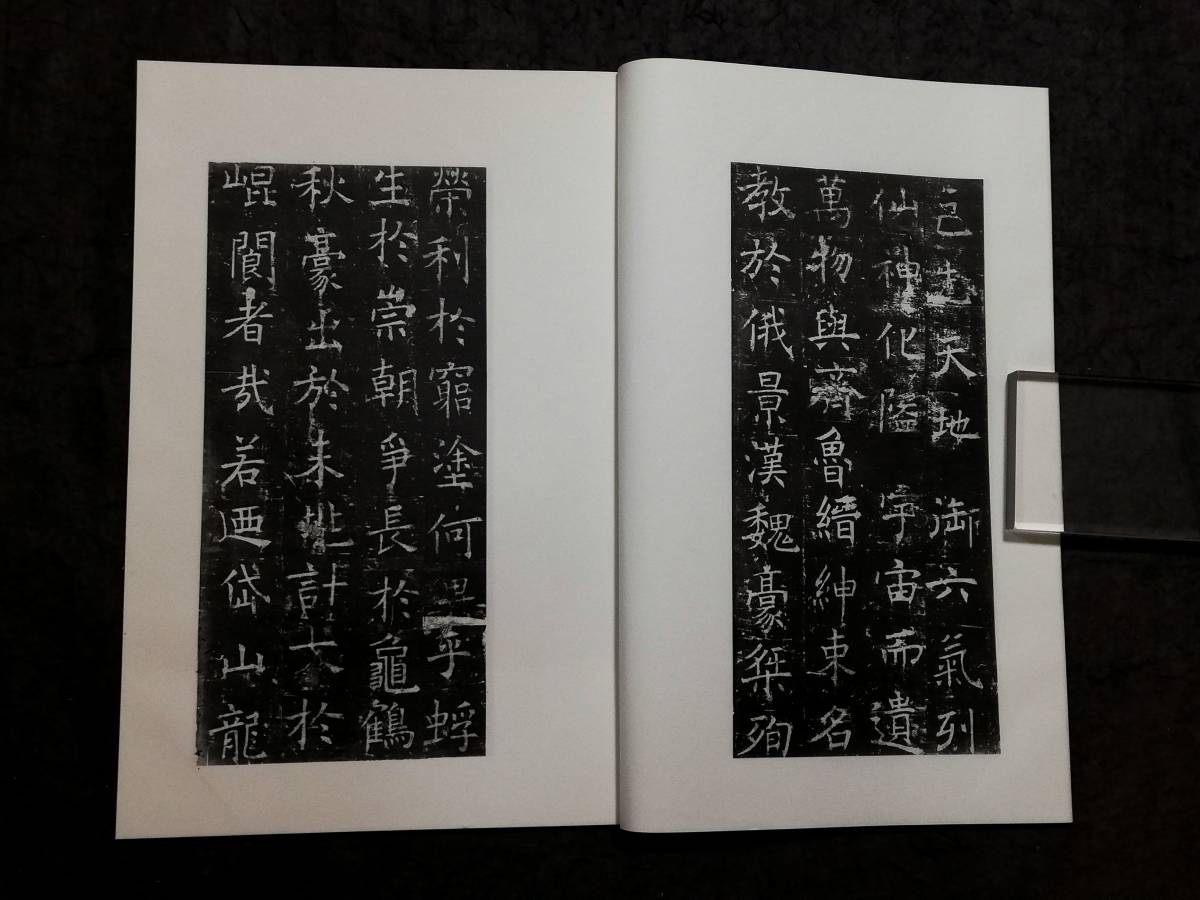 包生天地 御六氣列
仙神化隘 宇宙而遺
萬物與齊魯縉紳束名
教於俄景漢魏豪桀殉
榮利於窮塗何異乎蜉
生於崇朝爭長於龜鶴
秋豪出於未兆計大於
崐閬者哉若迺岱山龍